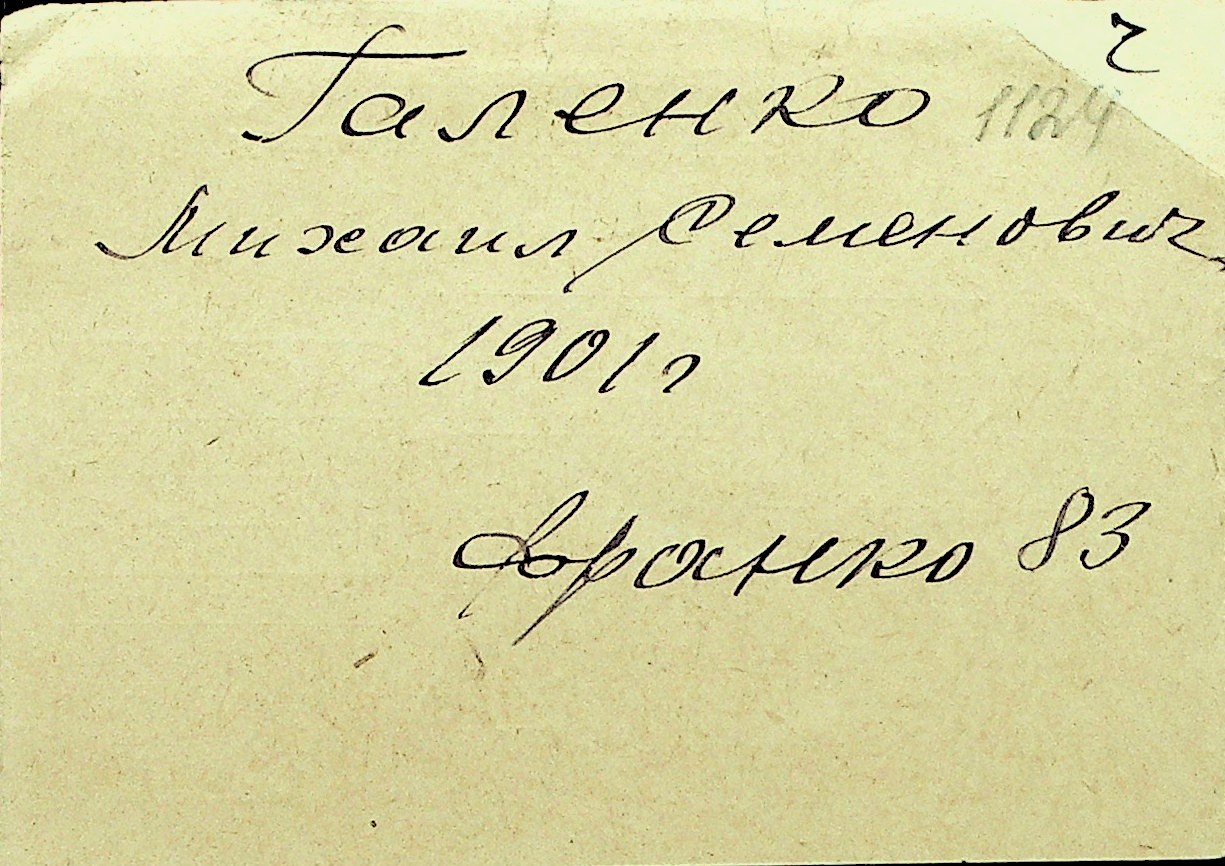 ч
Галенко 1124
Михаил Семенович
1901 г
Франко 83